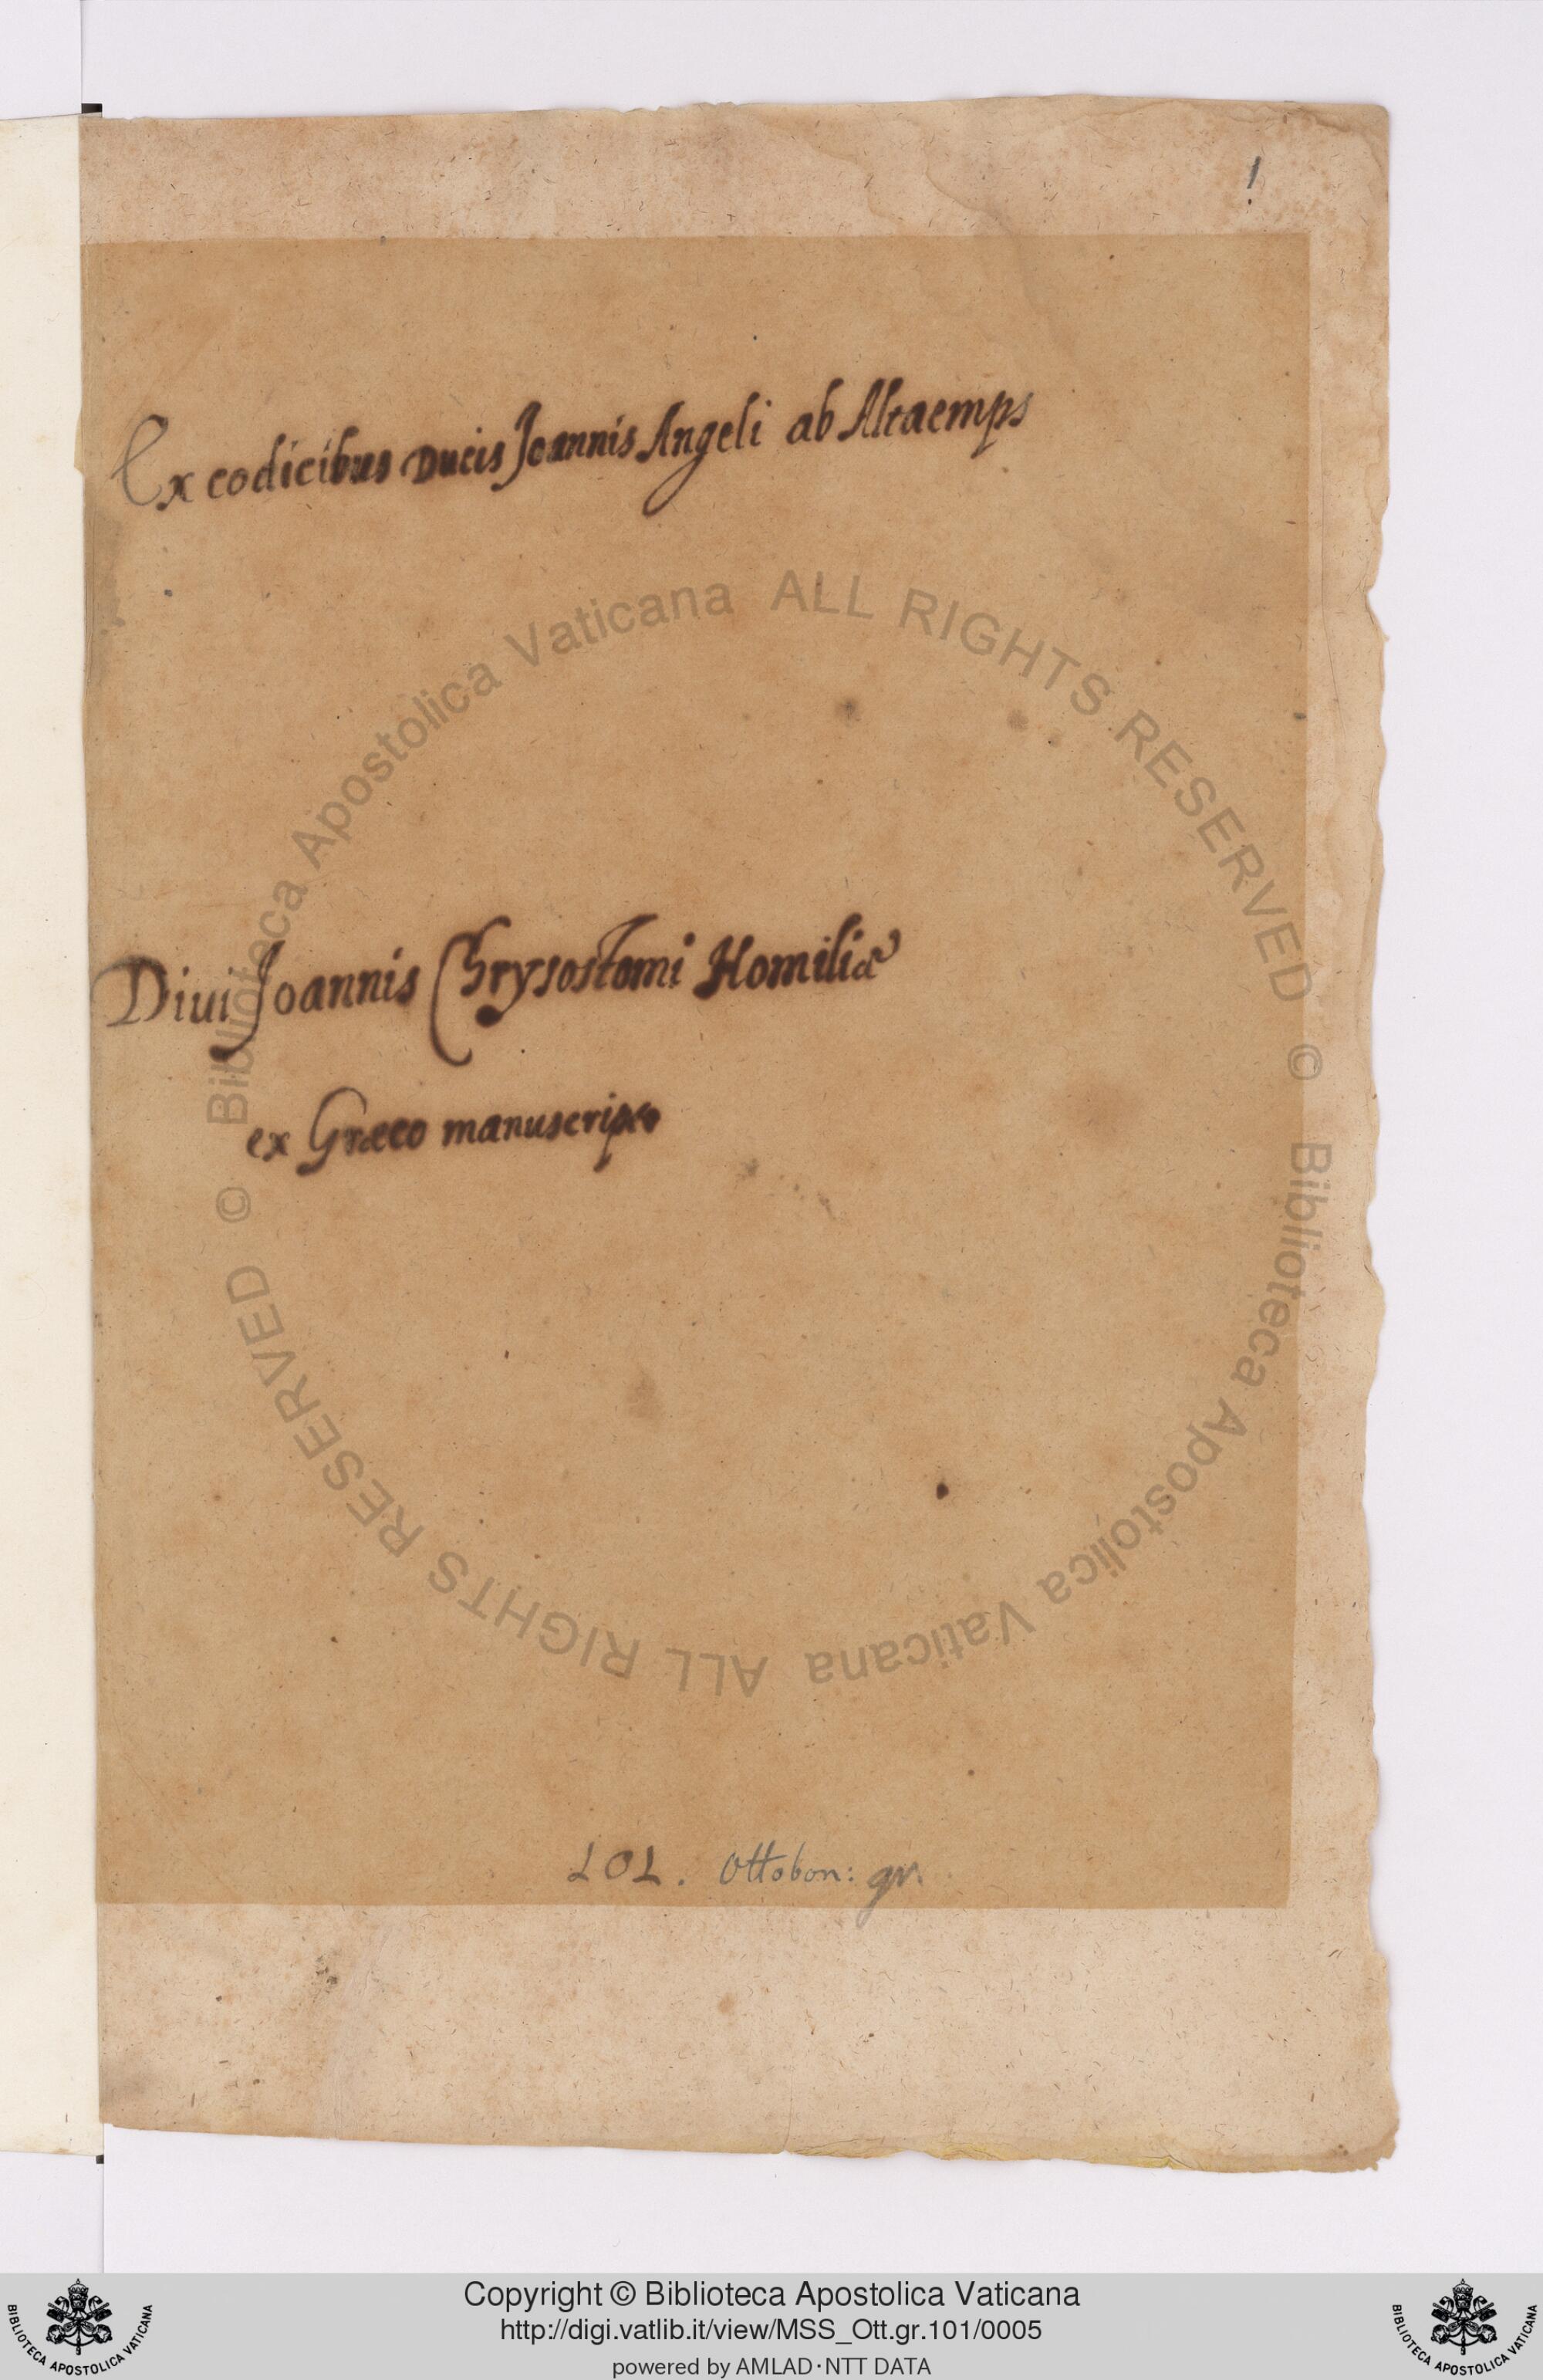 1
Ex codicibus Ducis Joannis Angeli ab Altaemps
Diui Joannis Chrysostomi Homiliæ
ex Græco manuscripto
101. Ottobon: gr.
© Biblioteca Apostolica Vaticana ALL RIGHTS RESERVED
© Biblioteca Apostolica Vaticana ALL RIGHTS RESERVED
Copyright © Biblioteca Apostolica Vaticana
http://digi.vatlib.it/view/MSS_Ott.gr.101/0005
powered by AMLAD·NTT DATA
BIBLIOTECA APOSTOLICA VATICANA
BIBLIOTECA APOSTOLICA VATICANA